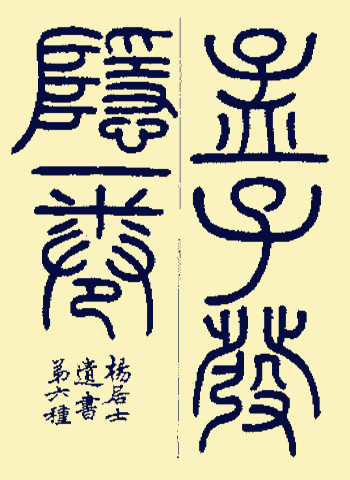 孟子發
隱一卷
楊居士
遺書
第六種